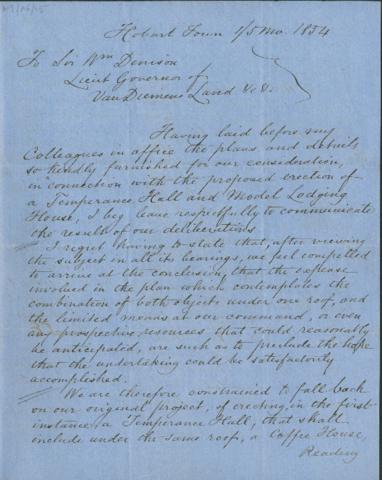 Hobart Town 1/5 mo. 1854
To Sir Wm Denison
Lieut Governor of
Van Diemens Land &c &c.
Having laid before my
Colleagues in office the plans and details
so kindly furnished for our consideration,
in connection with the proposed erection of
a Temperance Hall and Model Lodging
House, I beg leave respectfully to communicate
the result of our deliberations
I regret having to state that, after viewing
the subject in all its bearings, we feel compelled
to arrive at the conclusion, that the expense
involved in the plan which contemplates the
combination of both objects under one roof, and
the limited means at our command, or even
any prospective resources that could reasonably
be anticipated, are such as to preclude the hope
that the undertaking could be satisfactorily
accomplished.
We are therefore constrained to fall back
on our original project, of erecting, in the first
instance, a Temperance Hall, that shall
include under the same roof, a Coffee House,
Reading